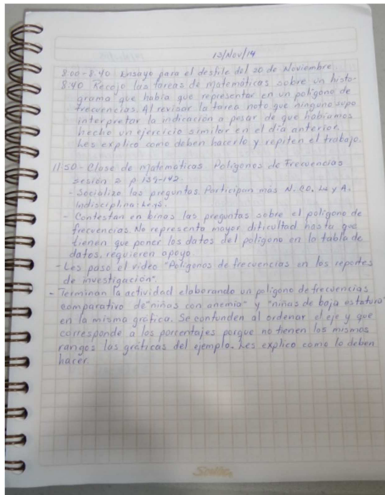 13/Nov/14
8:00-8:40 Ensayo para el desfile del 20 de Noviembre.
8:40 Recojo las tareas de matemáticas sobre un histo-
grama que había que representar en un polígono de
frecuencias. Al revisar la tarea noté que ninguno supo
interpretar la indicación a pesar de que habíamos
hecho un ejercicio similar en el día anterior.
Les explico como deben hacerlo y repiten el trabajo.
11:30- Clase de matemáticas Polígonos de Frecuencias
sesión 2 p.
- Socializo las preguntas Participan más N, CO, Lu y A.
indisciplina
- Contestan en binas las preguntas sobre el polígono de
frecuencias No representa mayor dificultad hasta que
tienen que poner los datos del polígono en la tabla de
datos, requieren apoyo.
- Les paso el video "Polígonos de frecuencias en los reportes
de investigación"
- Terminan la actividad elaborando un polígono de frecuencias
comparativo de "niñas con anemia" y "niñas de baja estatura"
en la misma gráfica. Se confunden al ordenar el eje y que
corresponde a los porcentajes porque no tienen los mismos
rangos las gráficas del ejemplo. Les explico como lo deben
hacer.